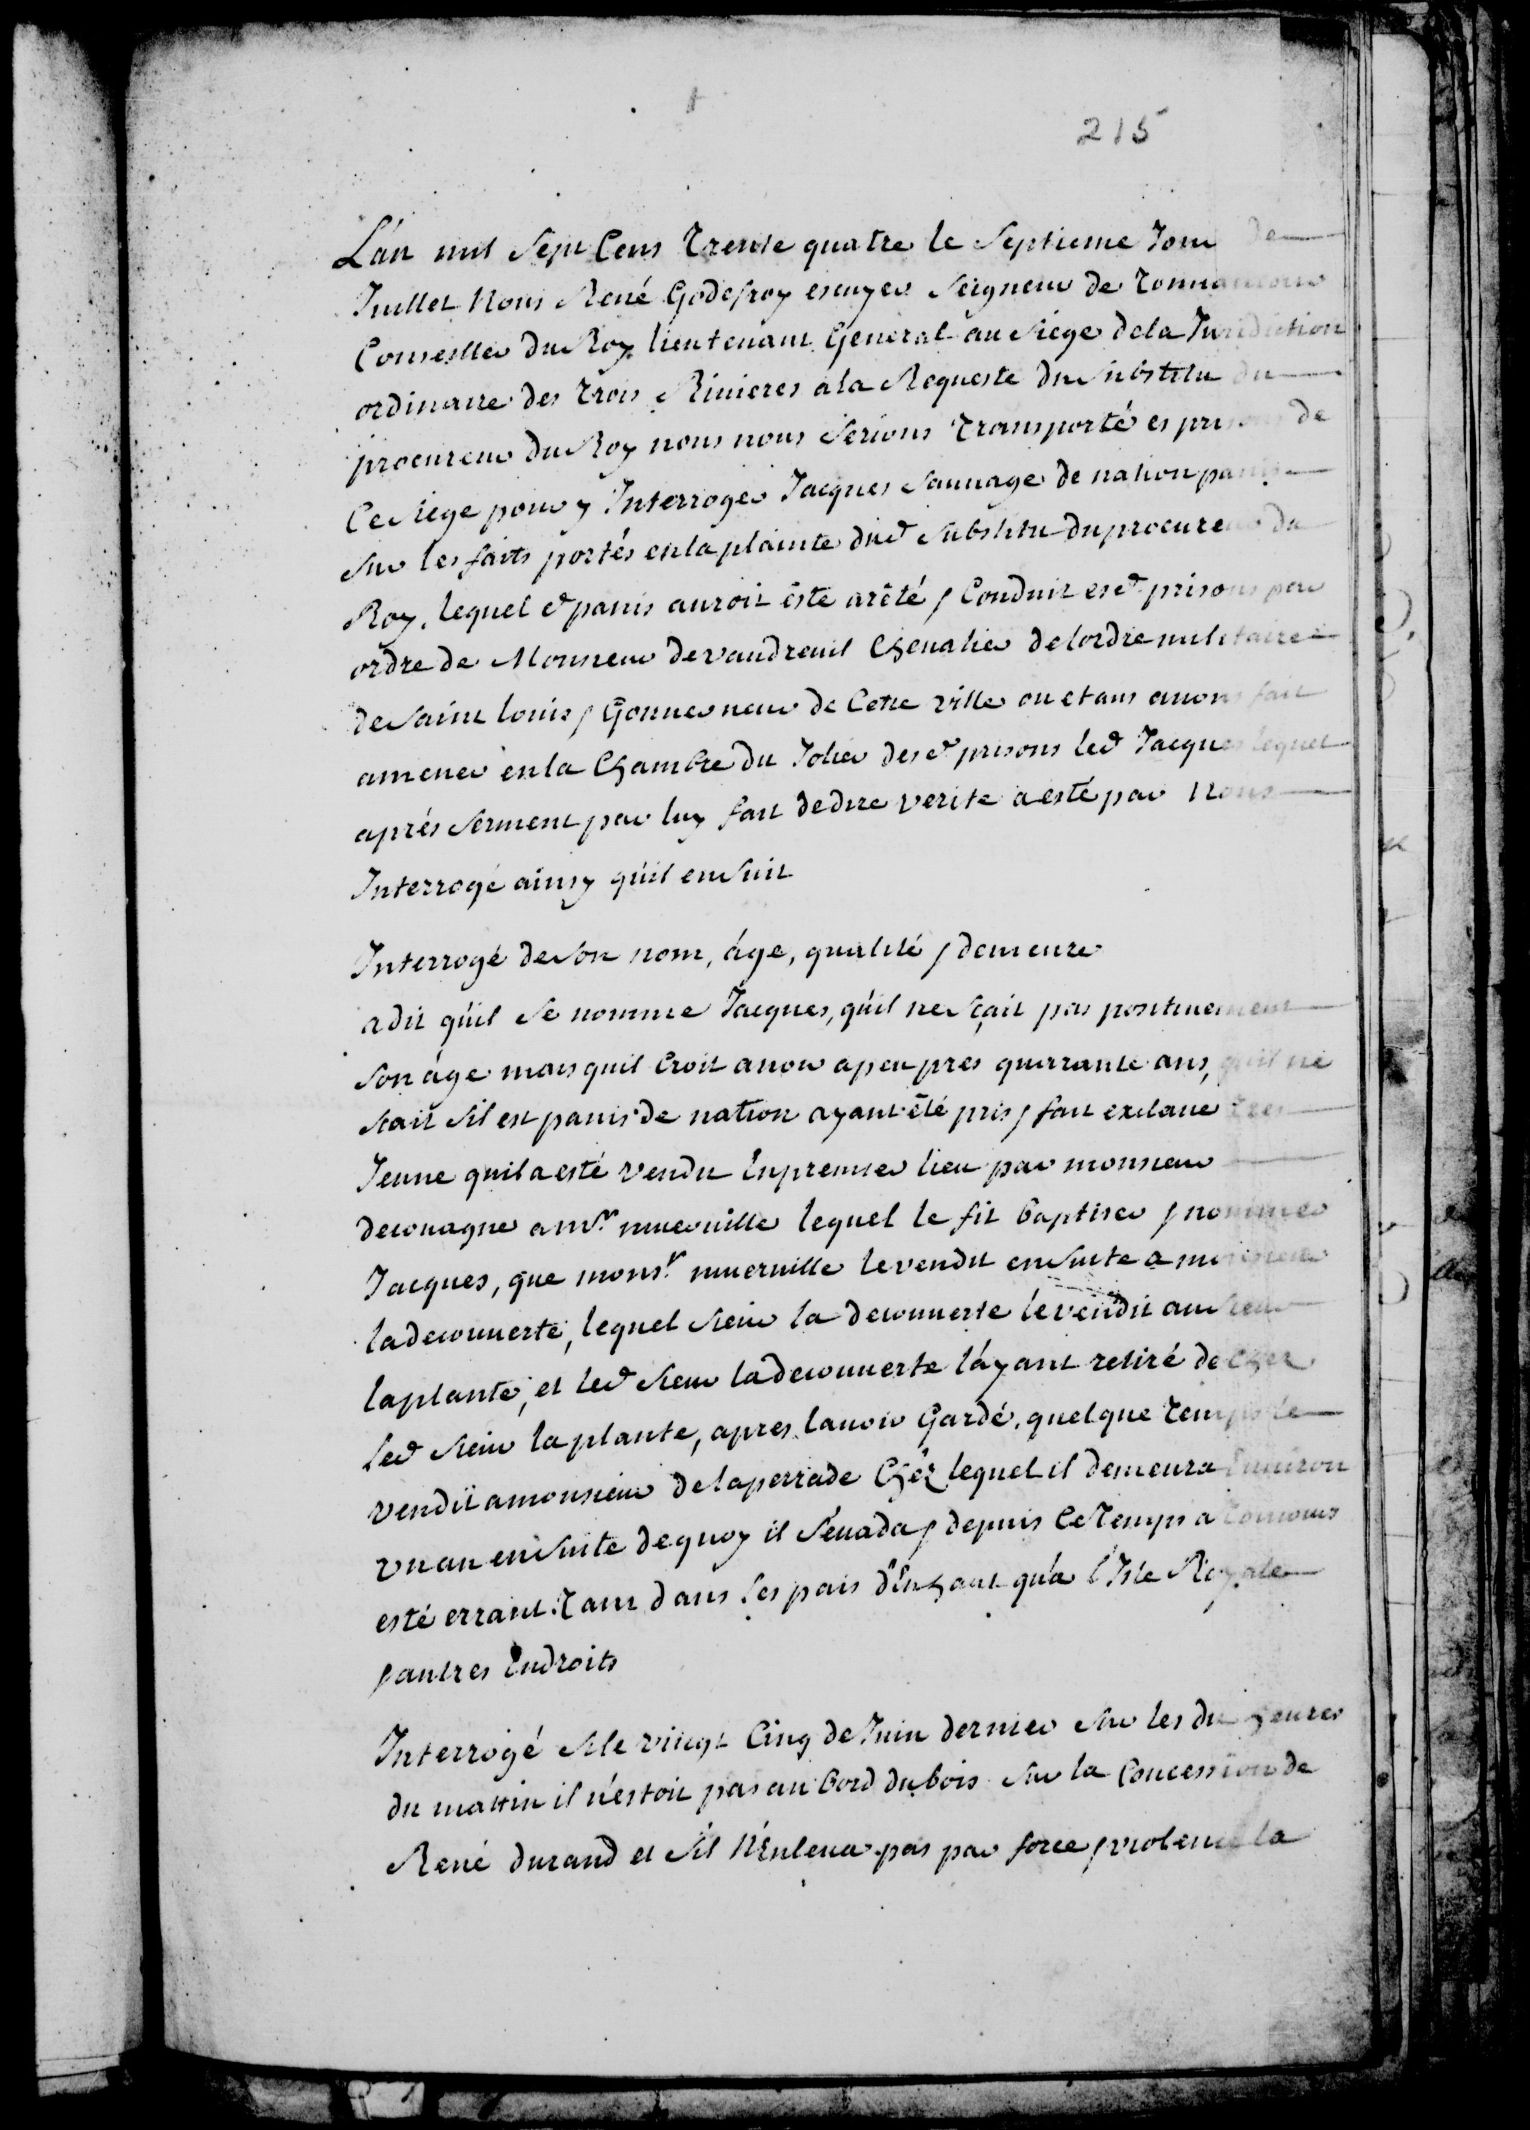 215
L'an mil sept Cens Trente quatre le septieme Jour de
Juillet Nous René Godefroy escuyer Seigneur de Tonnancour
Conseiller du Roy lieutenant General au siege de la Jurisdiction
ordinaire des Trois Rivieres a la Requeste du substitu du
procureur du Roy nous nous serions Transporté es prisons de
Ce siege pour y Interroger Jacques sauvage de nation panis
sur les faits portés en la plainte dud substitu du procureur du
Roy, lequel d panis auroit êste arêté & Conduit esd prisons par
ordre de Monsieur de vaudreuil Chevalier de lordre militaire
de saint louis & Gouverneur de Cette ville ou etans avons fait
amener en la Chambre du Jolier desd prisons led Jacques lequel
aprés serment par luy fait de dire verite a esté par Nous
Interrogé ainsy qu'il ensuit
Interrogé de son nom, âge, qualité & demeure
a dit qu'il se nomme Jacques, qu'il ne sçait pas positivement
son âge mais quil Croit avoir a peu pres quarrante ans, quil ne
scait sil est panis de nation ayant êté pris & fait exclave tres
Jeune quil a esté vendu En premier lieu par monsieur
decouagne a mr. nuerville lequel le fit baptiser & nommer
Jacques, que monsr. nuerville le vendit ensuite a monsieur
la decouverte, lequel sieur la decouverte le vendit au sieur
laplante, et led sieur la decouverte l'ayant retiré de chez
led sieur laplante, apres lavoir Gardé, quelque Temps le
vendit a monsieur de laperrade Chéz lequel il demeura Environ
un an ensuite de quoy il sévada & depuis Ce Temps a Toujours
esté errant Tant dans les pais d'Enhaut qu'a l'Isle Royale
& autres Endroits
Interrogé si le vingt Cinq de Juin dernier sur les dix heures
du mattin il n'estoit pas au bord du bois sur la Concession de
René durand et s'il N'Enleva pas par force & violence la